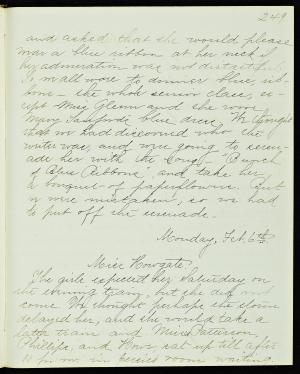 249
and asked that she would please
wear a blue ribbon at her neck if
her admiration was not distasteful.
So we all wore to dinner blue rib-
bons – the whole senior class, ex-
cept Miss Glenn and she wore
Mary Sandford's blue dress. We thought
that we had discovered who the
writer was, and were going to seren-
ade her with the song - "Bunch
of Blue Ribbons" and take her
a bouquet of paper flowers. But
we were mistaken, so we had
to put off the serenade.
Monday, Feb. 6th.
Miss Howgate.
The girls expected her Saturday on
the evening train, but she did not
come. We thought perhaps the storm
delayed her, and she would take a
later train and Misses Patterson,
Phillips, and sat up till after
11 p.m. in room waiting